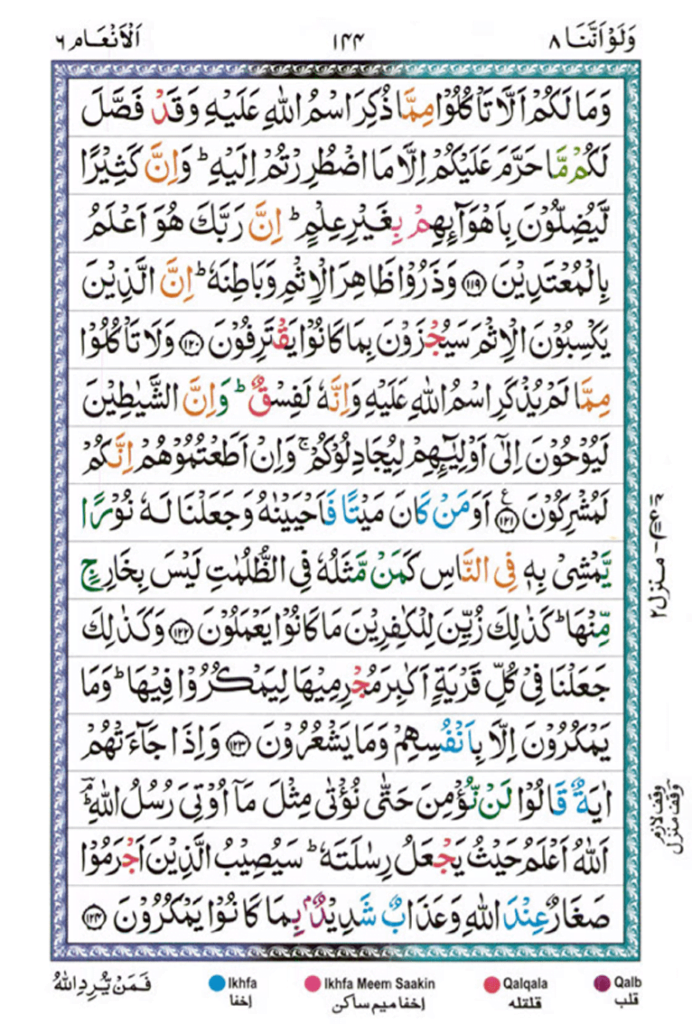 وَلَوْ اَنَّنَا ٨ ١٤٤ اَلْاَنْعَام ٦
وَمَا لَكُمْ اَلَّا تَاْكُلُوْا مِمَّا ذُكِرَ اسْمُ اللّٰهِ عَلَيْهِ وَقَدْ فَصَّلَ
لَكُمْ مَّا حَرَّمَ عَلَيْكُمْ اِلَّا مَا اضْطُرِرْتُمْ اِلَيْهِ ؕ وَاِنَّ كَثِيْرًا
لَّيُضِلُّوْنَ بِاَهْوَآئِهِمْ بِغَيْرِ عِلْمٍ ؕ اِنَّ رَبَّكَ هُوَ اَعْلَمُ
بِالْمُعْتَدِيْنَ ۝۱۱۹ وَذَرُوْا ظَاهِرَ الْاِثْمِ وَبَاطِنَهٗ ؕ اِنَّ الَّذِيْنَ
يَكْسِبُوْنَ الْاِثْمَ سَيُجْزَوْنَ بِمَا كَانُوْا يَقْتَرِفُوْنَ ۝۱۲۰ وَلَا تَاْكُلُوْا
مِمَّا لَمْ يُذْكَرِ اسْمُ اللّٰهِ عَلَيْهِ وَاِنَّهٗ لَفِسْقٌ ؕ وَاِنَّ الشَّيٰطِيْنَ
لَيُوْحُوْنَ اِلٰٓى اَوْلِيٰٓئِهِمْ لِيُجَادِلُوْكُمْ ۚ وَاِنْ اَطَعْتُمُوْهُمْ اِنَّكُمْ
لَمُشْرِكُوْنَ ۝۱۲۱ ع اَوَمَنْ كَانَ مَيْتًا فَاَحْيَيْنٰهُ وَجَعَلْنَا لَهٗ نُوْرًا
يَّمْشِيْ بِهٖ فِي النَّاسِ كَمَنْ مَّثَلُهٗ فِي الظُّلُمٰتِ لَيْسَ بِخَارِجٍ
مِّنْهَا ؕ كَذٰلِكَ زُيِّنَ لِلْكٰفِرِيْنَ مَا كَانُوْا يَعْمَلُوْنَ ۝۱۲۲ وَكَذٰلِكَ
جَعَلْنَا فِيْ كُلِّ قَرْيَةٍ اَكٰبِرَ مُجْرِمِيْهَا لِيَمْكُرُوْا فِيْهَا ؕ وَمَا
يَمْكُرُوْنَ اِلَّا بِاَنْفُسِهِمْ وَمَا يَشْعُرُوْنَ ۝۱۲۳ وَاِذَا جَآءَتْهُمْ
اٰيَةٌ قَالُوْا لَنْ نُّؤْمِنَ حَتّٰى نُؤْتٰى مِثْلَ مَاۤ اُوْتِيَ رُسُلُ اللّٰهِ ؔۘؕ
اَللّٰهُ اَعْلَمُ حَيْثُ يَجْعَلُ رِسٰلَتَهٗ ؕ سَيُصِيْبُ الَّذِيْنَ اَجْرَمُوْا
صَغَارٌ عِنْدَ اللّٰهِ وَعَذَابٌ شَدِيْدٌۢ بِمَا كَانُوْا يَمْكُرُوْنَ ۝۱۲۴
منزل ٢
وقف لازم
وقف منزل
فَمَنْ يُّرِدِ اللّٰهُ
Ikhfa Ikhfa Meem Saakin Qalqala Qalb
إخفا إخفا ميم ساكن قلقله قلب